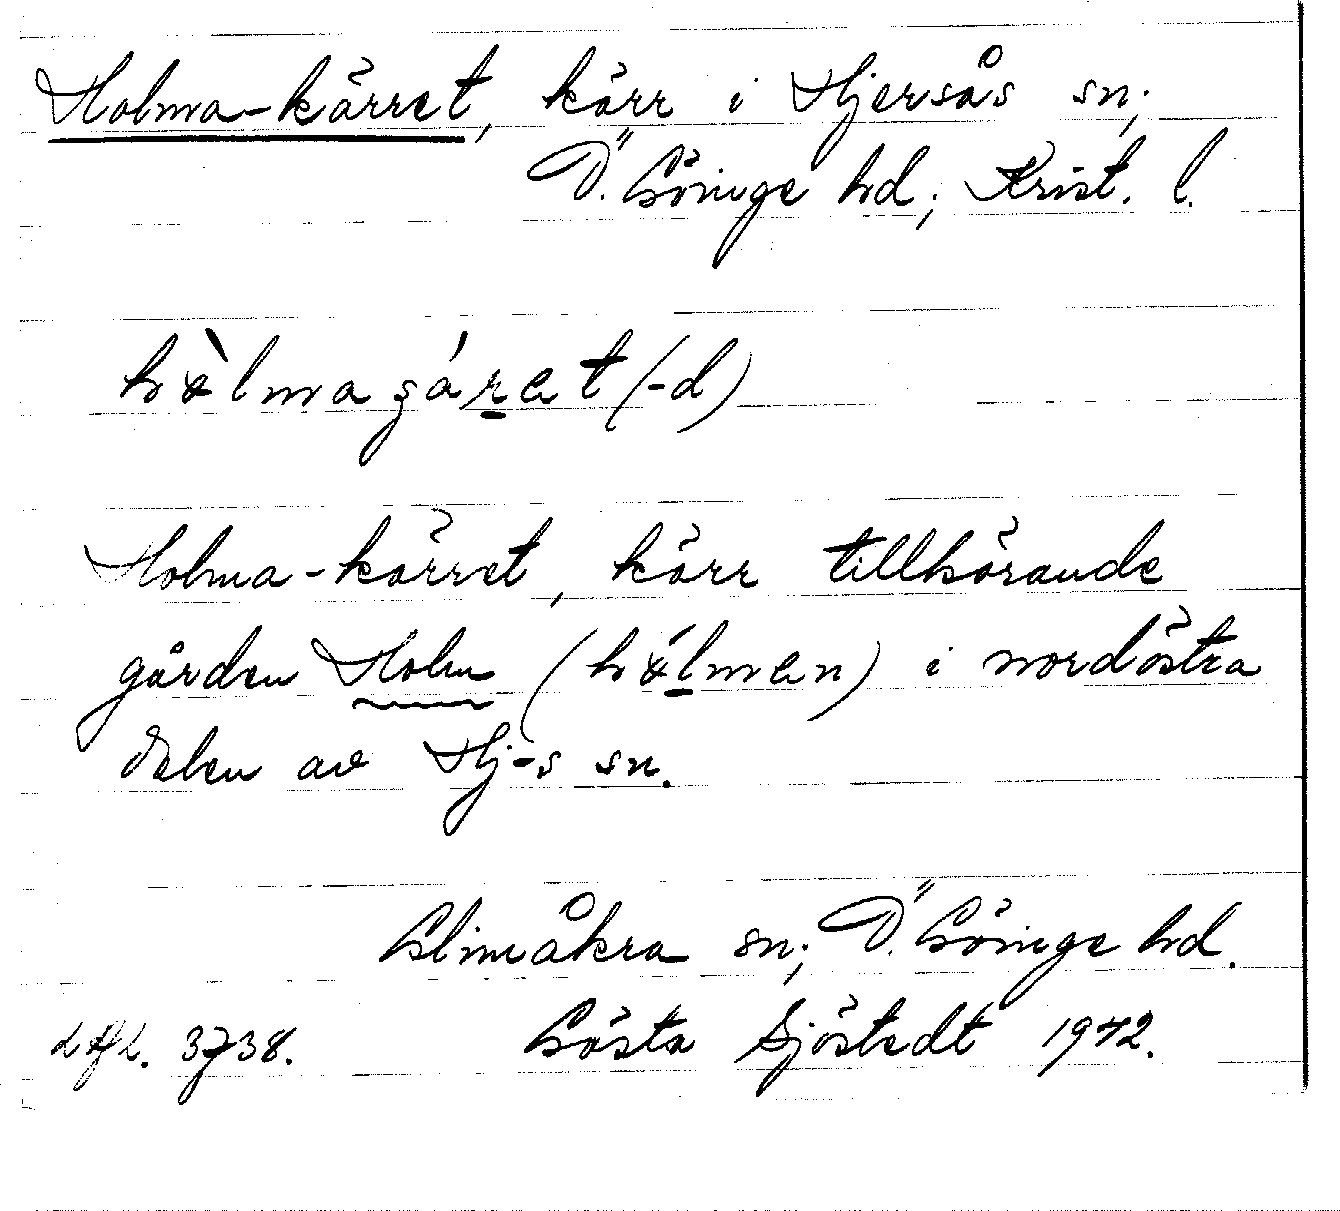 Holma-kärret, kärr i Hjersås sn;
Ö. Göinge hd; Krist. l.
(-d)
Holma-kärret, kärr tillhörande
gården Holm (hålmen) i nordöstra
delen av Hj-s sn.
Glimåkra sn; Ö. Göinge hd.
3738. Gösta Sjöstedt 1942.